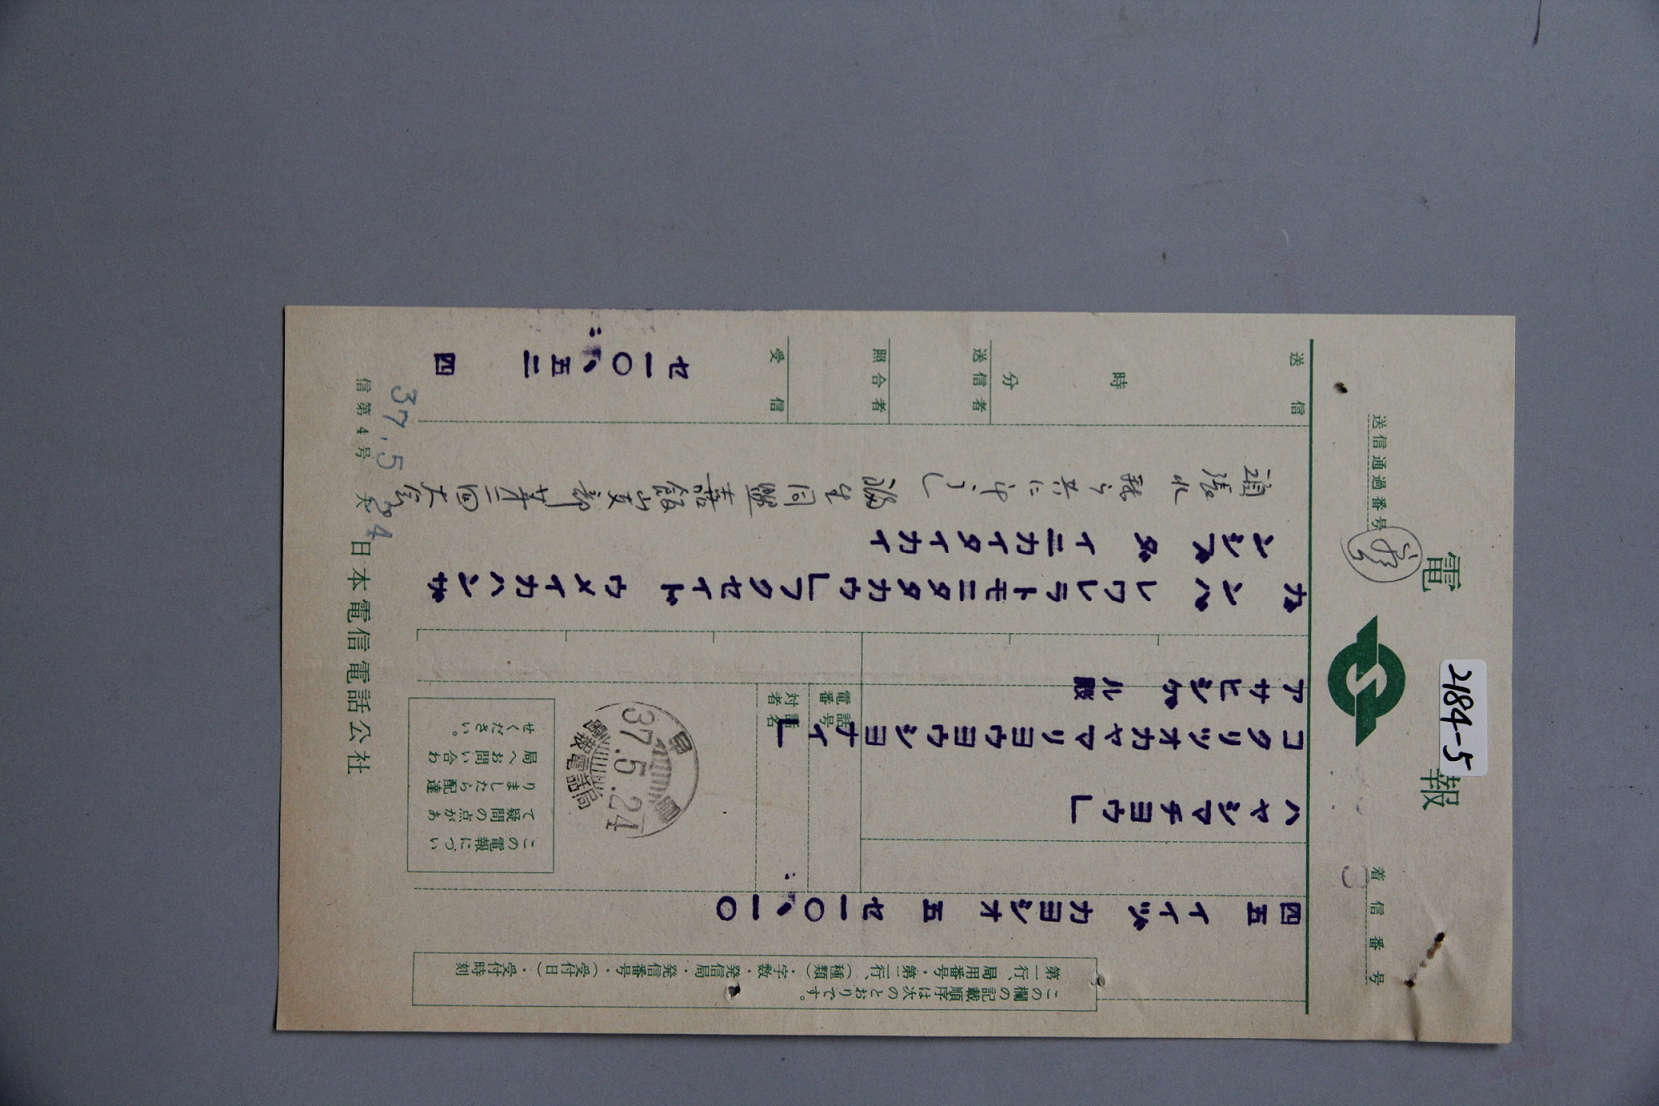 電報
送信通過番号
着信番号
2184-5
この欄の記載順序は次のとおりです。
第一行、局用番号・第二行、(種類)・字数・発信局・発信番号・(受付日)・受付時刻
四五 イイヅ カヨシオ 五 セ一〇、一〇
ハヤシマチヨウ」
コクリツオカヤマリヨウヨウシヨナイ」
アサヒシゲル殿
電話番号
対話者名
37.5.24
電報電話局
この電報につい
て疑問の点があ
りましたら配達
局へお問い合わ
せください。
ガンバレワレラトモニタタカウ」フクセイドウメイカハンザ
ンシブダイニカイタイカイ
頑張れ 我ら共に斗う」 同盟 支部 二回大会
送信
時
分
送信者
照合者
受信
セ一〇、五二 四
37.5.24
信第4号
日本電信電話公社